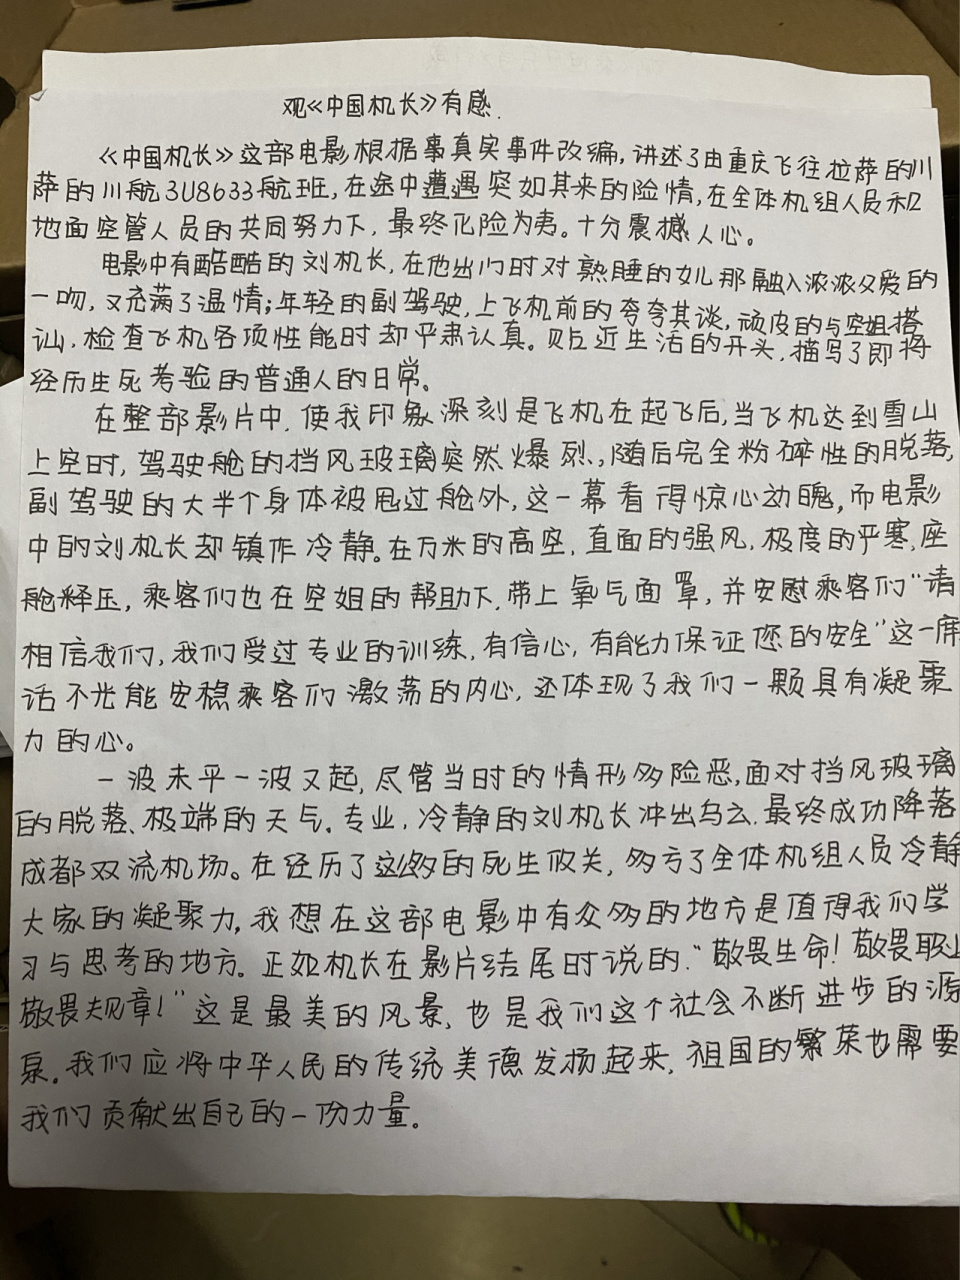 观《中国机长》有感.
《中国机长》这部电影根据事真实事件改编,讲述了由重庆飞往拉萨的川
萨的川航3U8633航班,在途中遭遇突如其来的险情,在全体机组人员和
地面空管人员的共同努力下,最终化险为夷。十分震撼人心。
电影中有酷酷的刘机长,在他出门时对熟睡的女儿那融入浓浓父爱的
一吻,又充满了温情;年轻的副驾驶,上飞机前的夸夸其谈,顽皮的与空姐搭
讪,检查飞机各项性能时却严肃认真。贴近生活的开头,描写了即将
经历生死考验的普通人的日常。
在整部影片中,使我印象深刻是飞机在起飞后,当飞机达到雪山
上空时,驾驶舱的挡风玻璃突然爆烈,随后完全粉碎性的脱落,
副驾驶的大半个身体被甩过舱外,这一幕看得惊心动魄,而电影
中的刘机长却镇作冷静。在万米的高空,直面的强风,极度的严寒,座
舱释压,乘客们也在空姐的帮助下,带上氧气面罩,并安慰乘客们“请
相信我们,我们受过专业的训练,有信心,有能力保证您的安全”这一席
话不光能安稳乘客们激荡的内心,还体现了我们一颗具有凝聚
力的心。
一波未平一波又起,尽管当时的情形多险恶,面对挡风玻璃
的脱落、极端的天气。专业,冷静的刘机长冲出乌云,最终成功降落
成都双流机场。在经历了这么多的死生攸关,多亏了全体机组人员冷静
大家的凝聚力,我想在这部电影中有众多的地方是值得我们学
习与思考的地方。正如机长在影片结尾时说的:“敬畏生命!敬畏职业
敬畏规章!”这是最美的风景,也是我们这个社会不断进步的源
泉.我们应将中华人民的传统美德发扬起来,祖国的繁荣也需要
我们贡献出自己的一份力量。